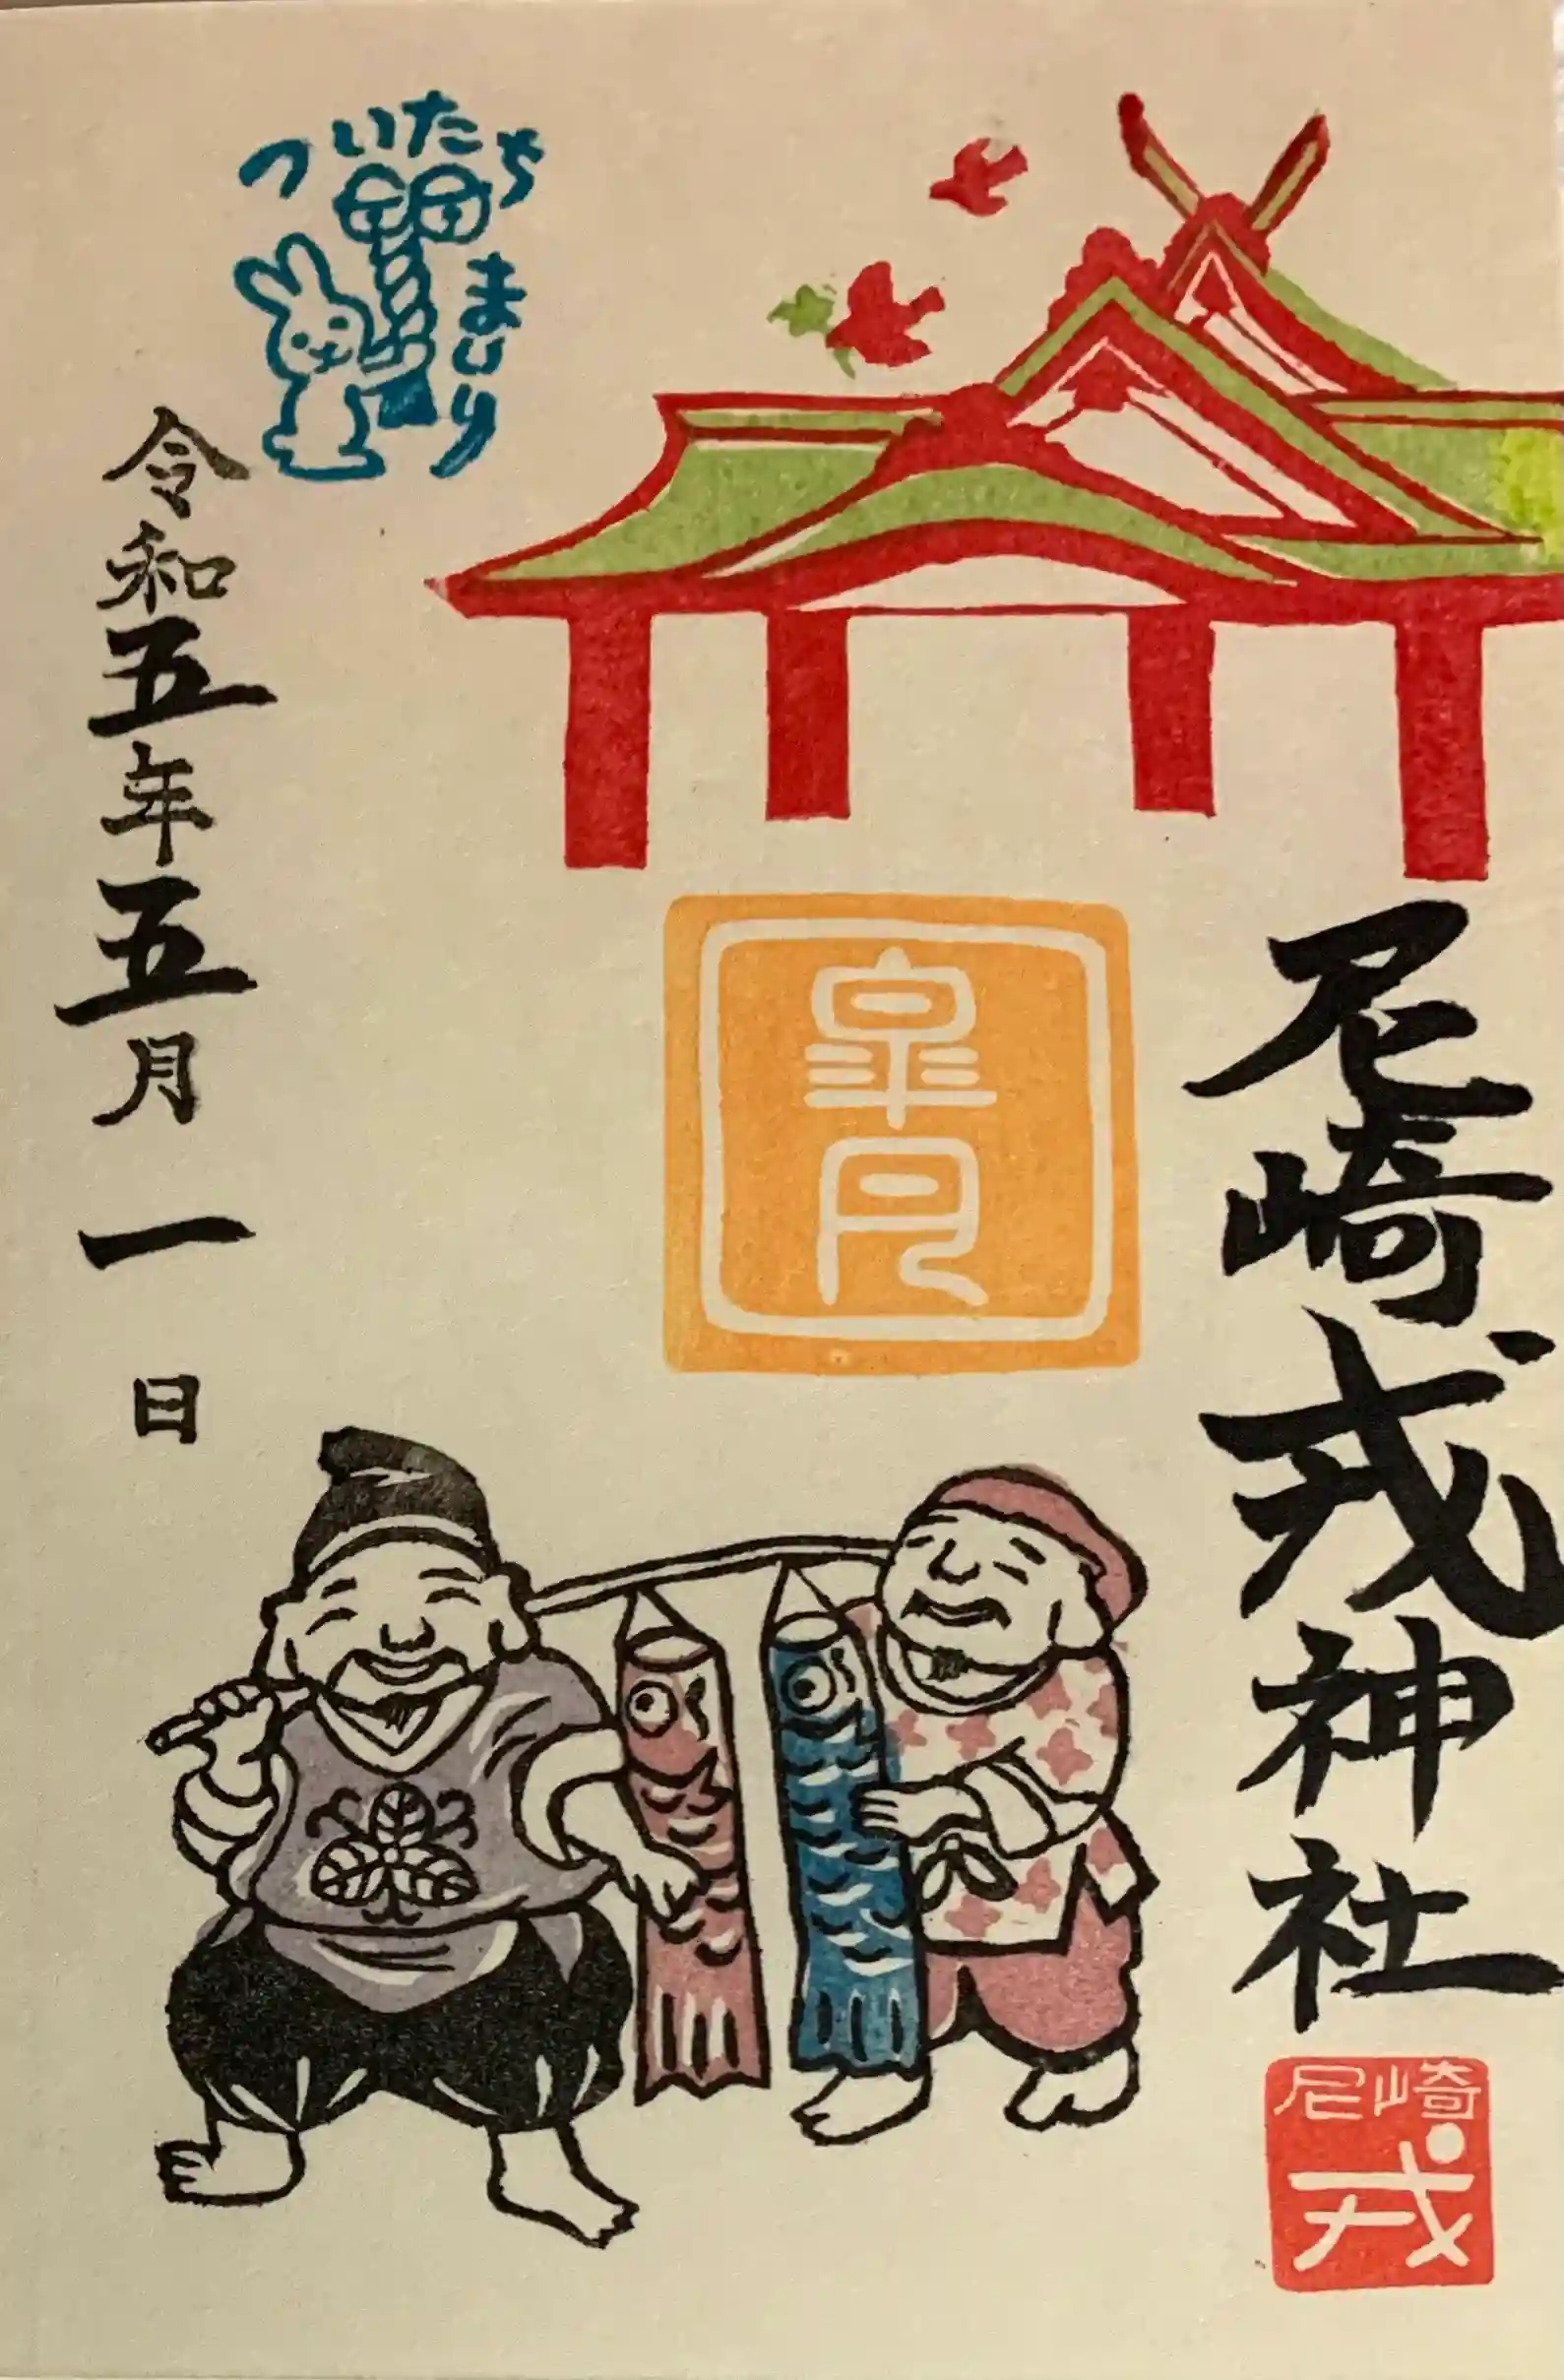 尼崎戎神社
尼崎
戎
皐月
ついたち
まいり
令和五年五月一日